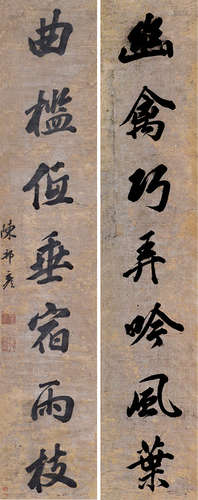 幽禽巧弄吟風葉
曲檻低垂宿雨枝
陳邦彥